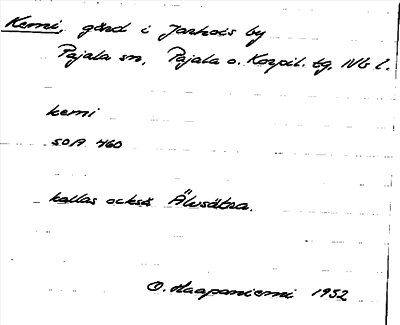 Kemi, gård i Jarhois by
Pajala sn, Pajala o. Korpil. tg, Nb l.
kemi
SOA 460
kallas också Älvsåkra.
O. Haapaniemi 1952